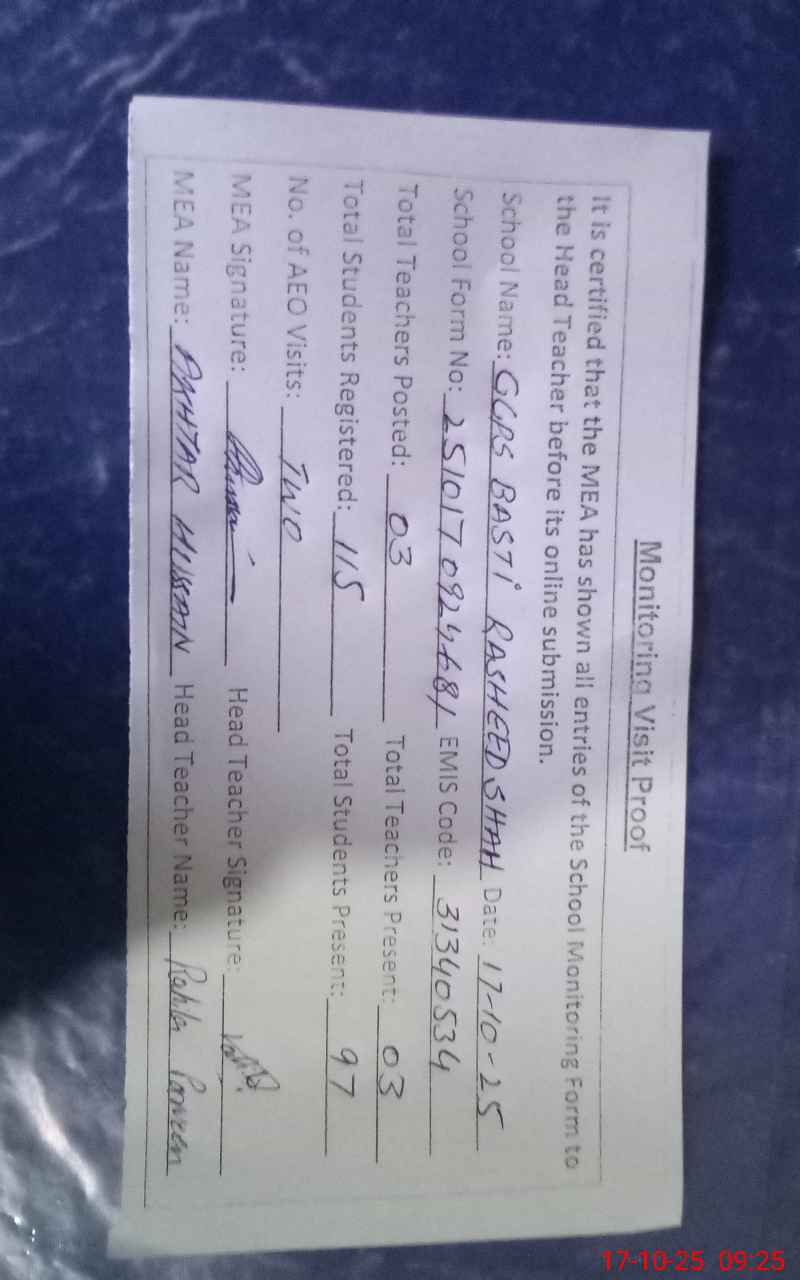 Monitoring Visit Proof
It is certified that the MEA has shown all entries of the School Monitoring Form to
the Head Teacher before its online submission.
School Name: GGPS BASTI RASHEED SHAH Date: 17-10-25
School Form No: EMIS Code: 31340534
Total Teachers Posted: 03 Total Teachers Present: 03
Total Students Registered: 115 Total Students Present: 97
No. of AEO Visits: TWO
MEA Signature: Head Teacher Signature:
MEA Name: AKHTAR HUSSAIN Head Teacher Name: Rahila Parveen
17-10-25 09:25